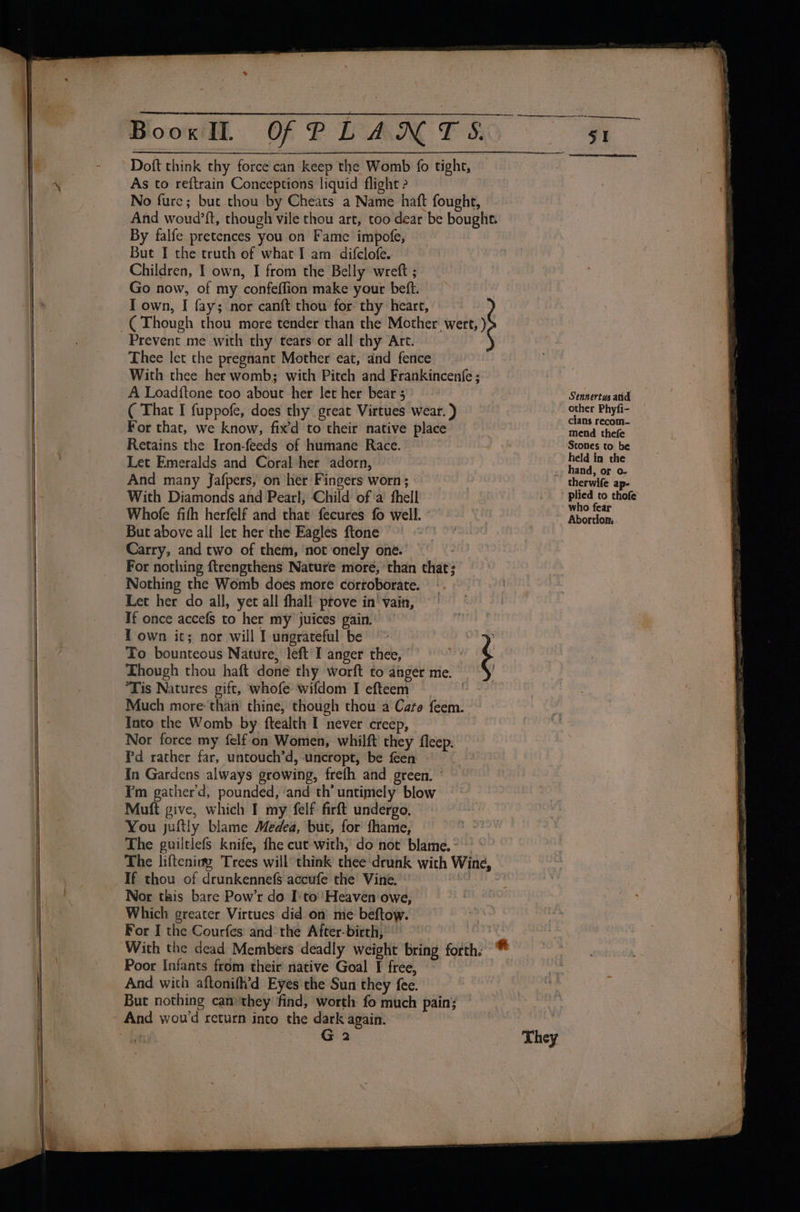 Book II. Of PLANTS. 51
Doſt think thy force can keep the Womb ſo tight,
As to reſtrain Conceptions liquid flight?
No ſure; but thou by Cheats a Name haſt ſought,
And woud’ſt, though vile thou art, too dear be bought.
By falſe pretences you on Fame impoſe,
But I the truth of what I am diſcloſe.
Children, I own, I from the Belly wreſt;
Go now, of my confeſſion make your beſt.
I own, I ſay; nor canſt thou for thy heart,
(Though thou more tender than the Mother wert,)
Prevent me with thy tears or all thy Art.
Thee let the pregnant Mother eat, and fence
With thee her womb; with Pitch and Frankincenſe;
A Loadſtone too about her let her bear;
(That I ſuppoſe, does thy great Virtues wear.)
For that, we know, fix’d to their native place
Retains the Iron-ſeeds of humane Race.
Let Emeralds and Coral her adorn,
And many Jaſpers, on her Fingers worn;
With Diamonds and Pearl, Child of a ſhell
Whoſe fiſh herſelf and that ſecures ſo well.
But above all let her the Eagles ſtone
Carry, and two of them, not onely one.
For nothing ſtrengthens Nature more, than that;
Nothing the Womb does more corroborate.
Let her do all, yet all ſhall prove in vain,
If once acceſs to her my juices gain.
I own it; nor will I ungrateful be
To bounteous Nature, left I anger thee,
Though thou haſt done thy worſt to anger me.
’Tis Natures gift, whoſe wiſdom I eſteem
Much more than thine, though thou a Cato ſeem.
Into the Womb by ſtealth I never creep,
Nor force my ſelf on Women, whilſt they ſleep.
I’d rather far, untouch’d, uncropt, be ſeen
In Gardens always growing, freſh and green.
I’m gather’d, pounded, and th’ untimely blow
Muſt give, which I my ſelf firſt undergo.
You juſtly blame Medea, but, for ſhame,
The guiltleſs knife, ſhe cut with, do not blame.
The liſtening Trees will think thee drunk with Wine,
If thou of drunkenneſs accuſe the Vine.
Nor this bare Pow’r do I to Heaven owe,
Which greater Virtues did on me beſtow.
For I the Courſes and the After-birth,
With the dead Members deadly weight bring forth.
Poor Infants from their native Goal I free,
And with aſtoniſh’d Eyes the Sun they ſee.
But nothing can they find, worth ſo much pain;
And wou’d return into the dark again.
G 2 They
Sennertus and
other Phyſi-
cians recom-
mend theſe
Stones to be
held in the
hand, or o-
therwiſe ap-
plied to thoſe
who fear
Abortion.